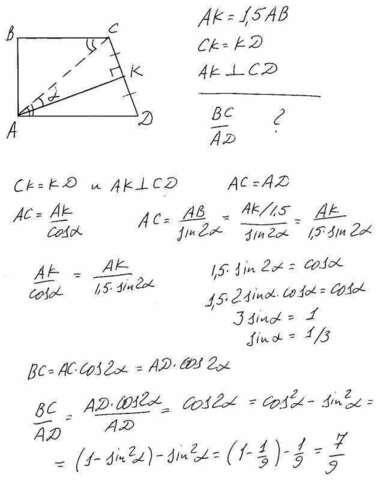 B
C
K
α
A
D
AK = 1,5 AB
CK = KD
AK ⊥ CD
BC/AD ?
CK = KD и AK ⊥ CD AC = AD
AC = AK/cosα AC = AB/sin2α = (AK/1,5)/sin2α = AK/(1,5·sin2α)
AK/cosα = AK/(1,5·sin2α) 1,5·sin2α = cosα
1,5·2sinα·cosα = cosα
3sinα = 1
sinα = 1/3
BC = AC·cos2α = AD·cos2α
BC/AD = (AD·cos2α)/AD = cos2α = cos²α – sin²α =
= (1 – sin²α) – sin²α = (1 – 1/9) – 1/9 = 7/9